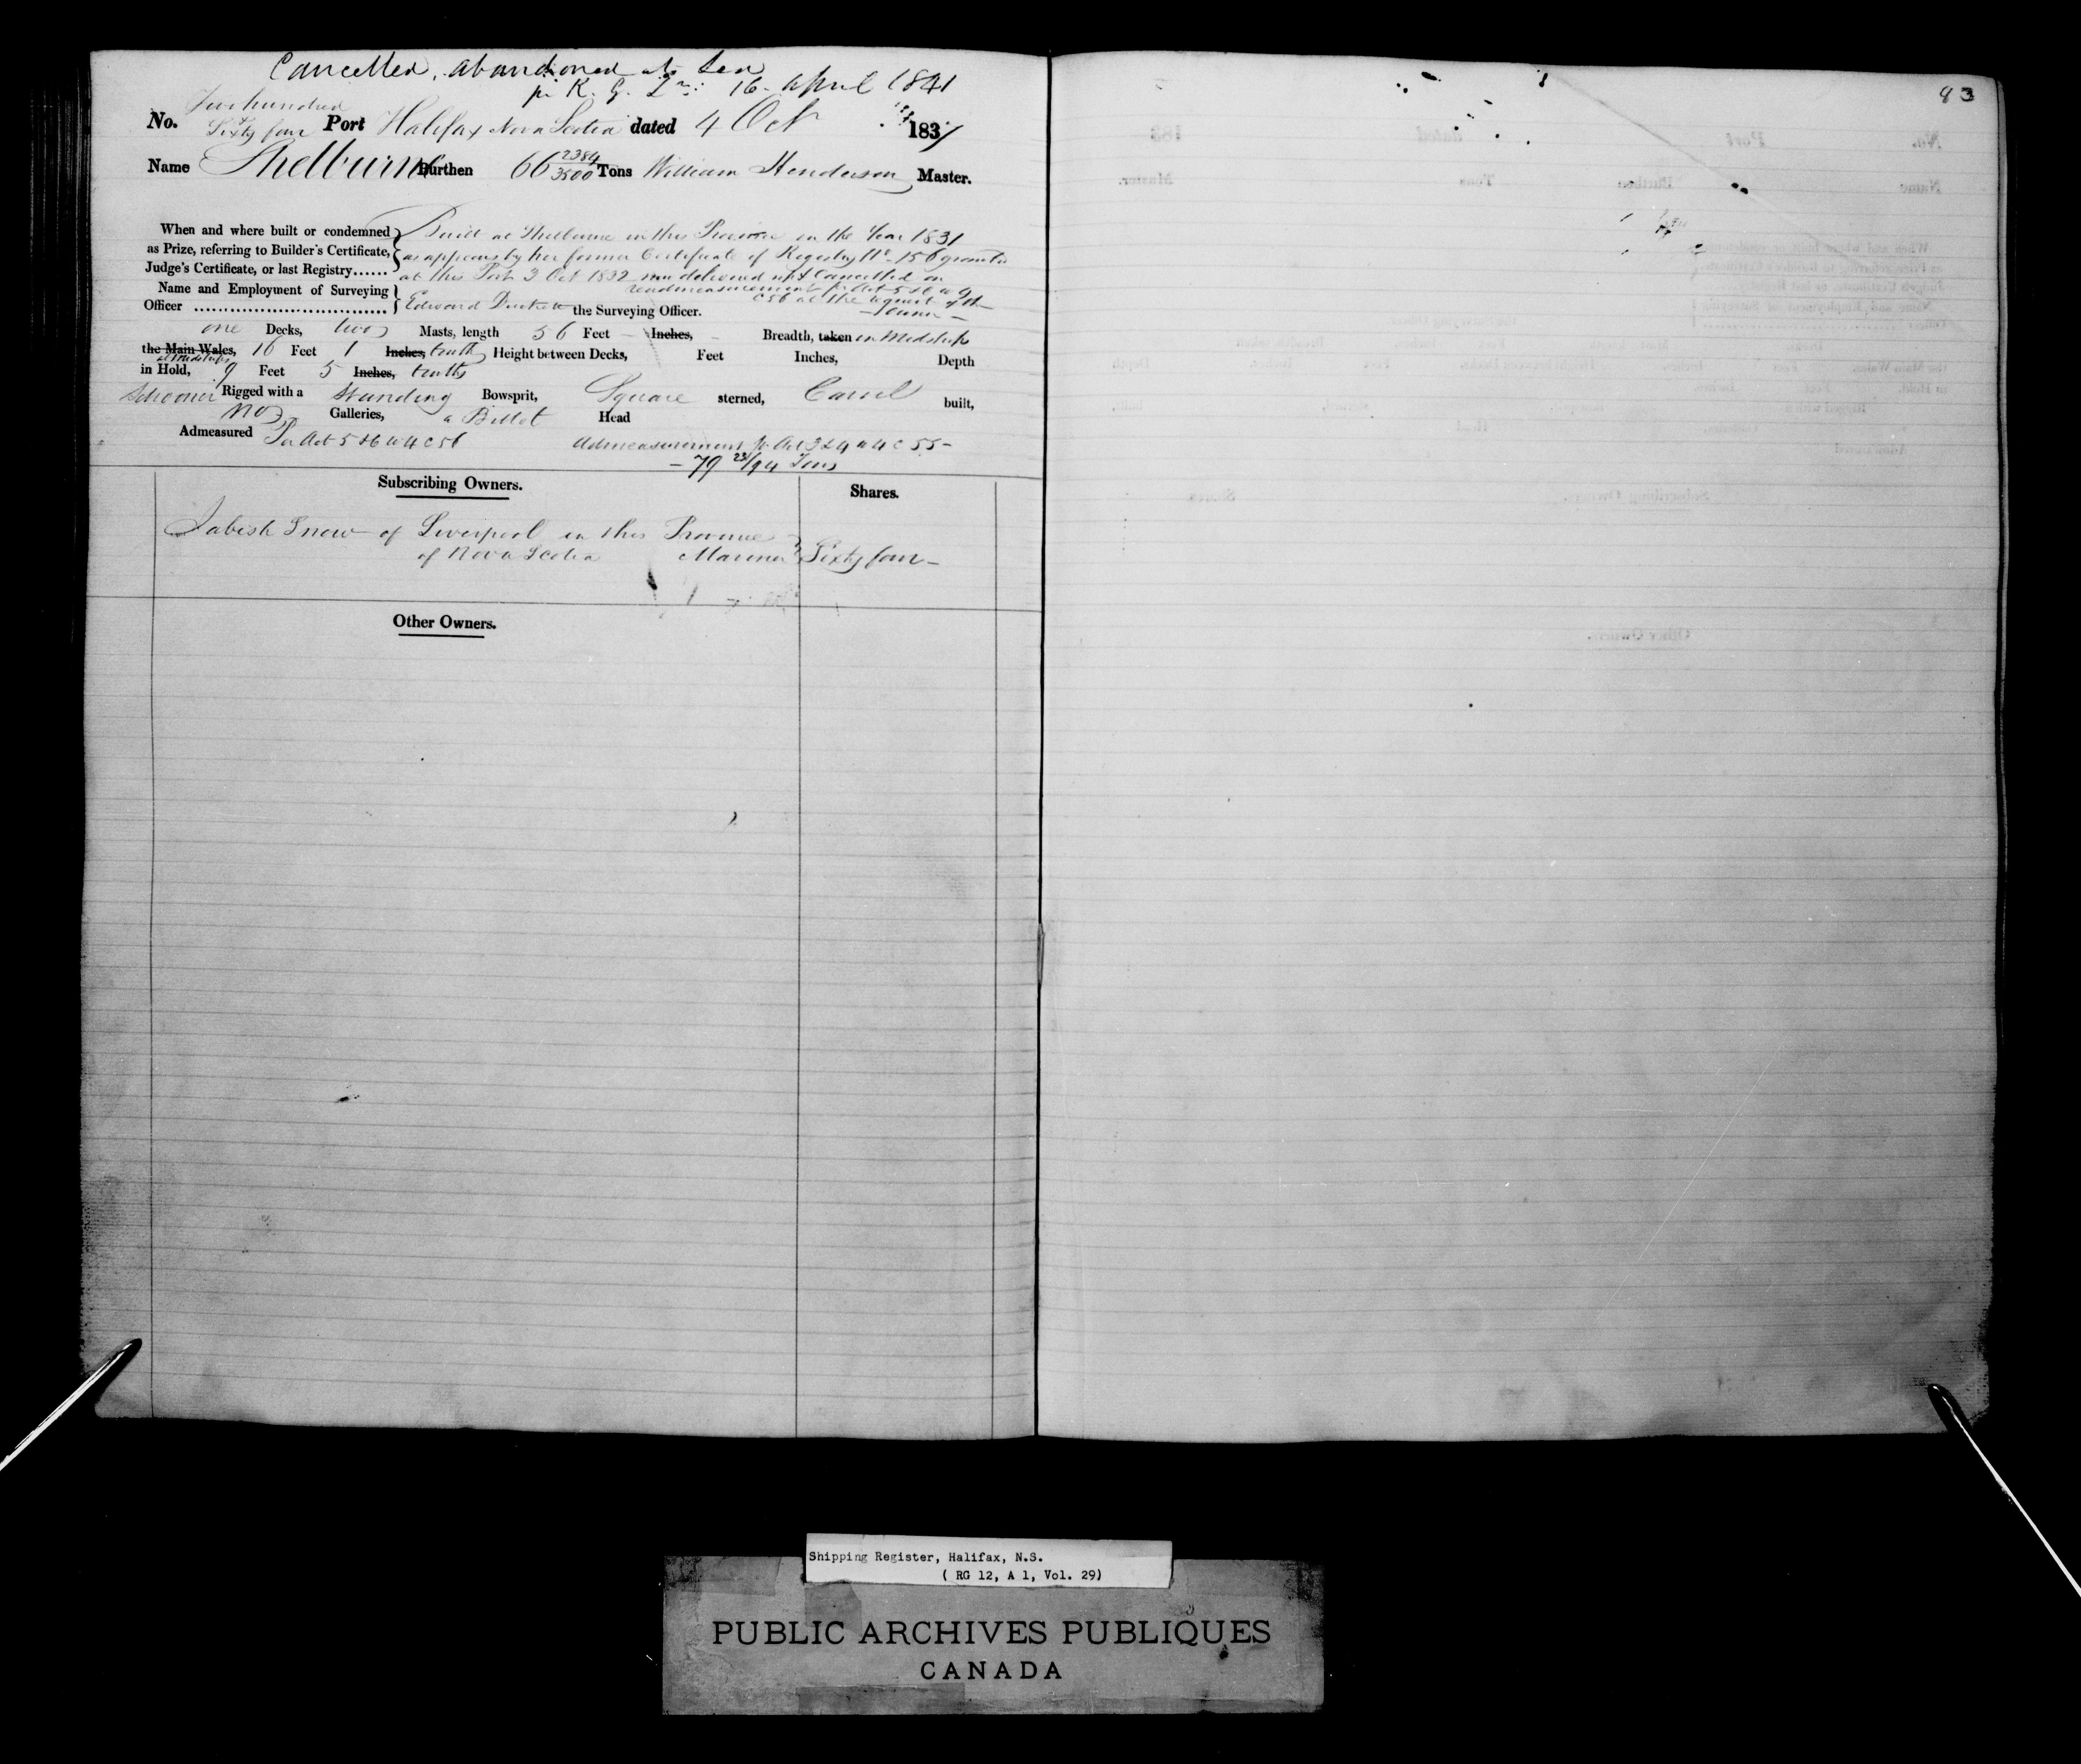 Cancelled, abandoned at Sea
pr R. G. Lr: 16 April 1841
Two hundred
No. & Sixty four Port Halifax Nova Scotia dated 4 Oct 183
Name Shelburne Burthen 66 2384/3500 Tons William Henderson Master.
When and where built or condemned Built at Shelburne in this Province in the Year 1831
as Prize, referring to Builder's Certificate, as appears by her former Certificate of Registry No 156 granted
Judge's Certificate, or last Registry...... at this Port 3 Oct 1832 now delivered up & Cancelled on
readmeasurement pr Act 5 & 6 W 4
C 56 at the request of the
Owner –
Name and Employment of Surveying
Officer ................................ Edward the Surveying Officer.
one Decks, two Masts, length 56 Feet – Inches, – Breadth, taken in Midships
the Main Wales, 16 Feet 1 Inches, tenth Height between Decks, Feet Inches, Depth
at Midships
in Hold, 9 Feet 5 Inches, tenths
Schooner Rigged with a Standing Bowsprit, Square sterned, Carvel built,
no Galleries, a Billet Head
Admeasured Pr Act 5 & 6 W 4 C 56 Admeasurement pr Act 3 & 4 W 4 C 55 –
– 79 23/94 Tons
Subscribing Owners. Shares.
Jabish Snow of Liverpool in this Province
of Nova Scotia Mariner Sixty four –
Other Owners.
83
Shipping Register, Halifax, N.S.
( RG 12, A 1, Vol. 29)
PUBLIC ARCHIVES PUBLIQUES
CANADA